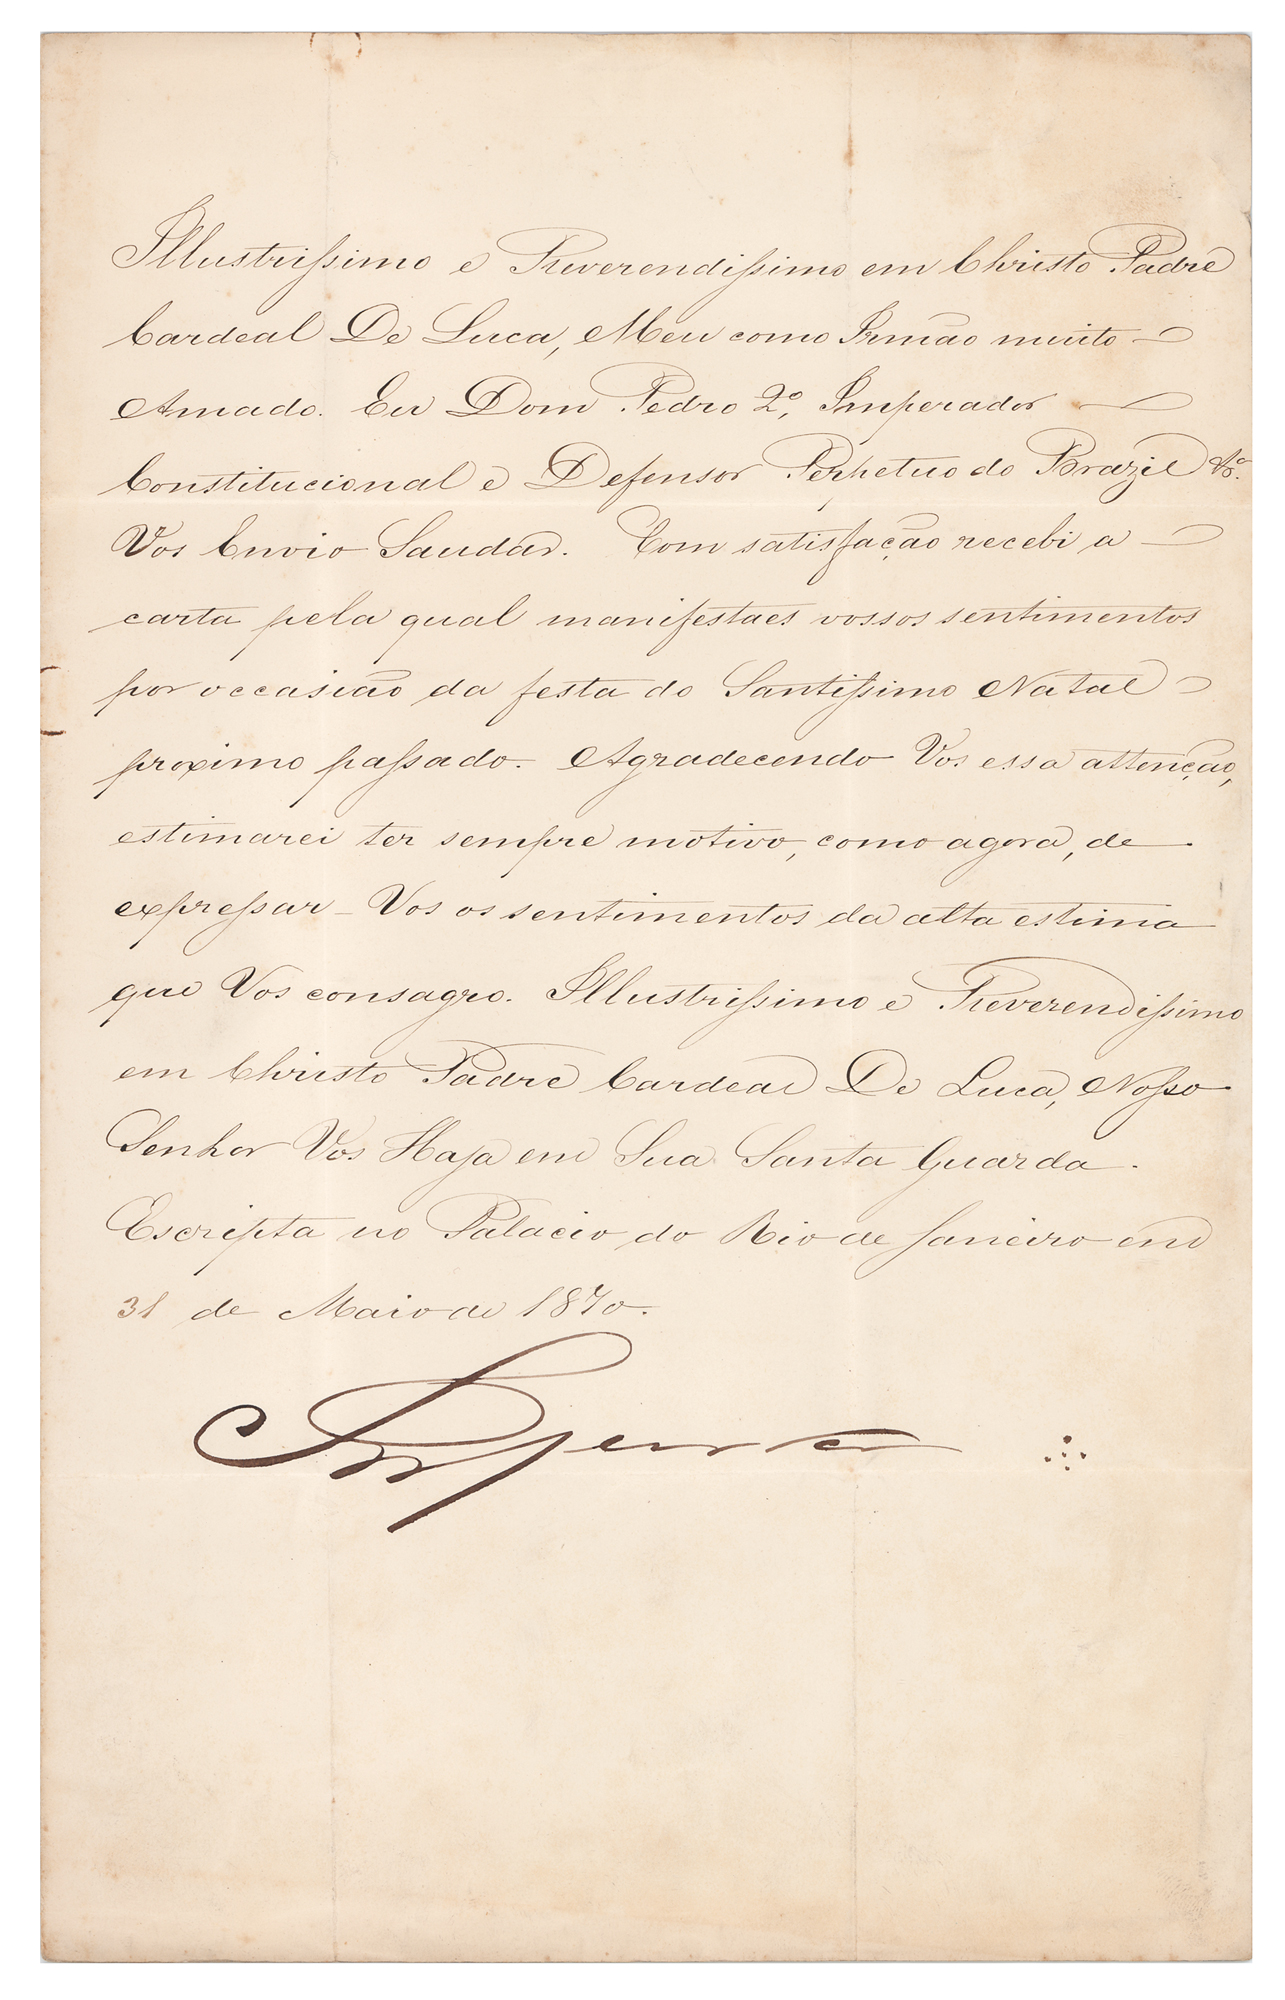 Illustrissimo e Reverendissimo em Christo Padre
Cardeal De Luca, Meu como Irmão muito —
Amado. Eu Dom Pedro 2º, Imperador —
Constitucional e Defensor Perpetuo do Brazil &ª.
Vos Envio Saudar. Com satisfação recebi a —
carta pela qual manifestaes vossos sentimentos
por occasião da festa do Santissimo Natal —
proximo passado. Agradecendo Vos essa attenção,
estimarei ter sempre motivo, como agora, de
expressar-Vos os sentimentos da alta estima
que Vos consagro. Illustrissimo e Reverendissimo
em Christo Padre Cardeal De Luca, Nosso
Senhor Vos Haja em Sua Santa Guarda.
Escripta no Palacio do Rio de Janeiro em
31 de Maio de 1870.
Imperador